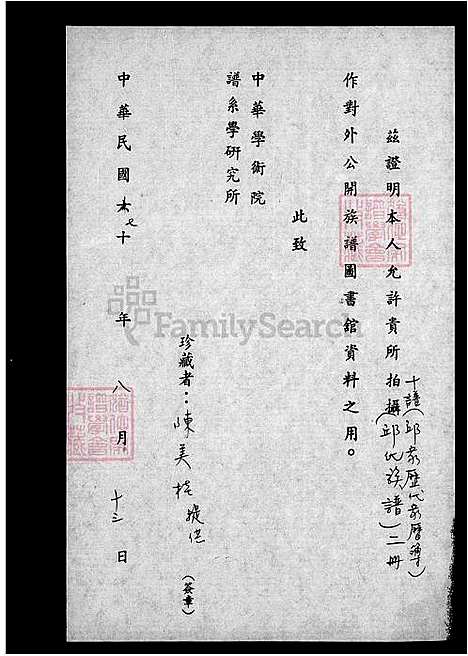 茲證明本人允許貴所拍攝(邱氏族譜)二冊
十譜(邱家歷代家曆簿)
作對外公開族譜圖書館資料之用。
此致
中華學術院
譜系學研究所
珍藏者：陳美 提供 (簽章)
中華民國七十年八月十三日
FamilySearch